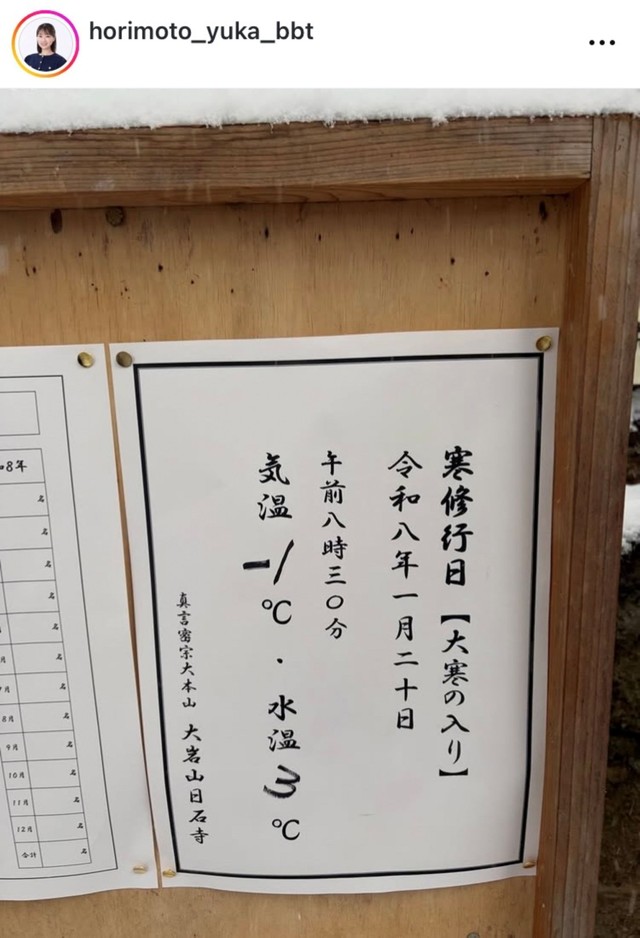 horimoto_yuka_bbt
寒修行日【大寒の入り】
令和八年一月二十日
午前八時三〇分
気温 -1℃・水温 3℃
真言密宗大本山 大岩山日石寺
8年
名
名
名
名
名
名
7月 名
8月 名
9月 名
10月 名
11月 名
12月 名
合計 名